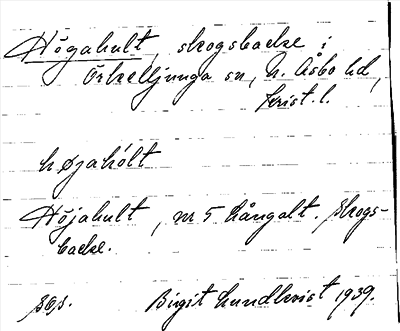 Högahult, skogsbacke i
Örkelljunga sn, N. Åsbo hd,
Krist. l.
højahólt
Höjahult, nr 5 Kångalt. Skogs-
backe.
sgs. Birgit Lundkvist 1939.